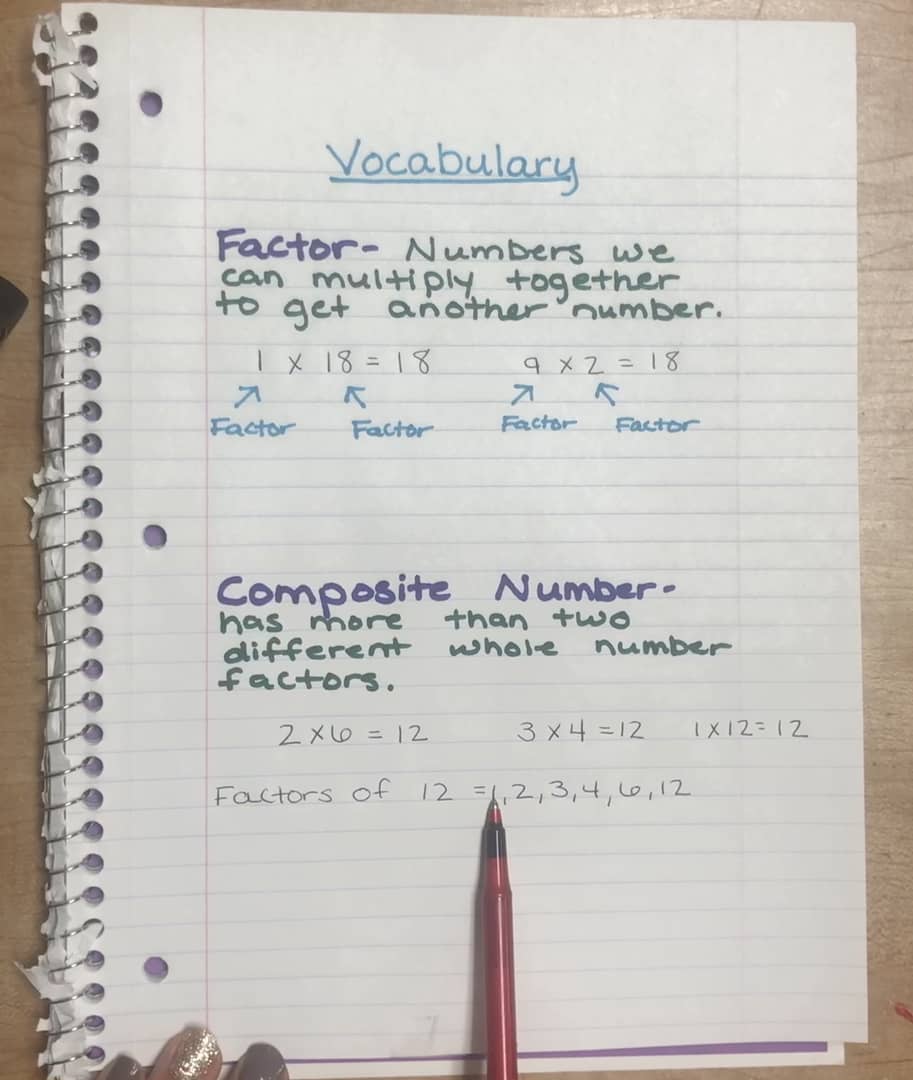 Vocabulary
Factor- Numbers we
can multiply together
to get another number.
1 x 18 = 18 9 x 2 = 18
Factor Factor Factor Factor
Composite Number-
has more than two
different whole number
factors.
2 x 6 = 12 3 x 4 = 12 1 x 12 = 12
Factors of 12 = 1, 2, 3, 4, 6, 12